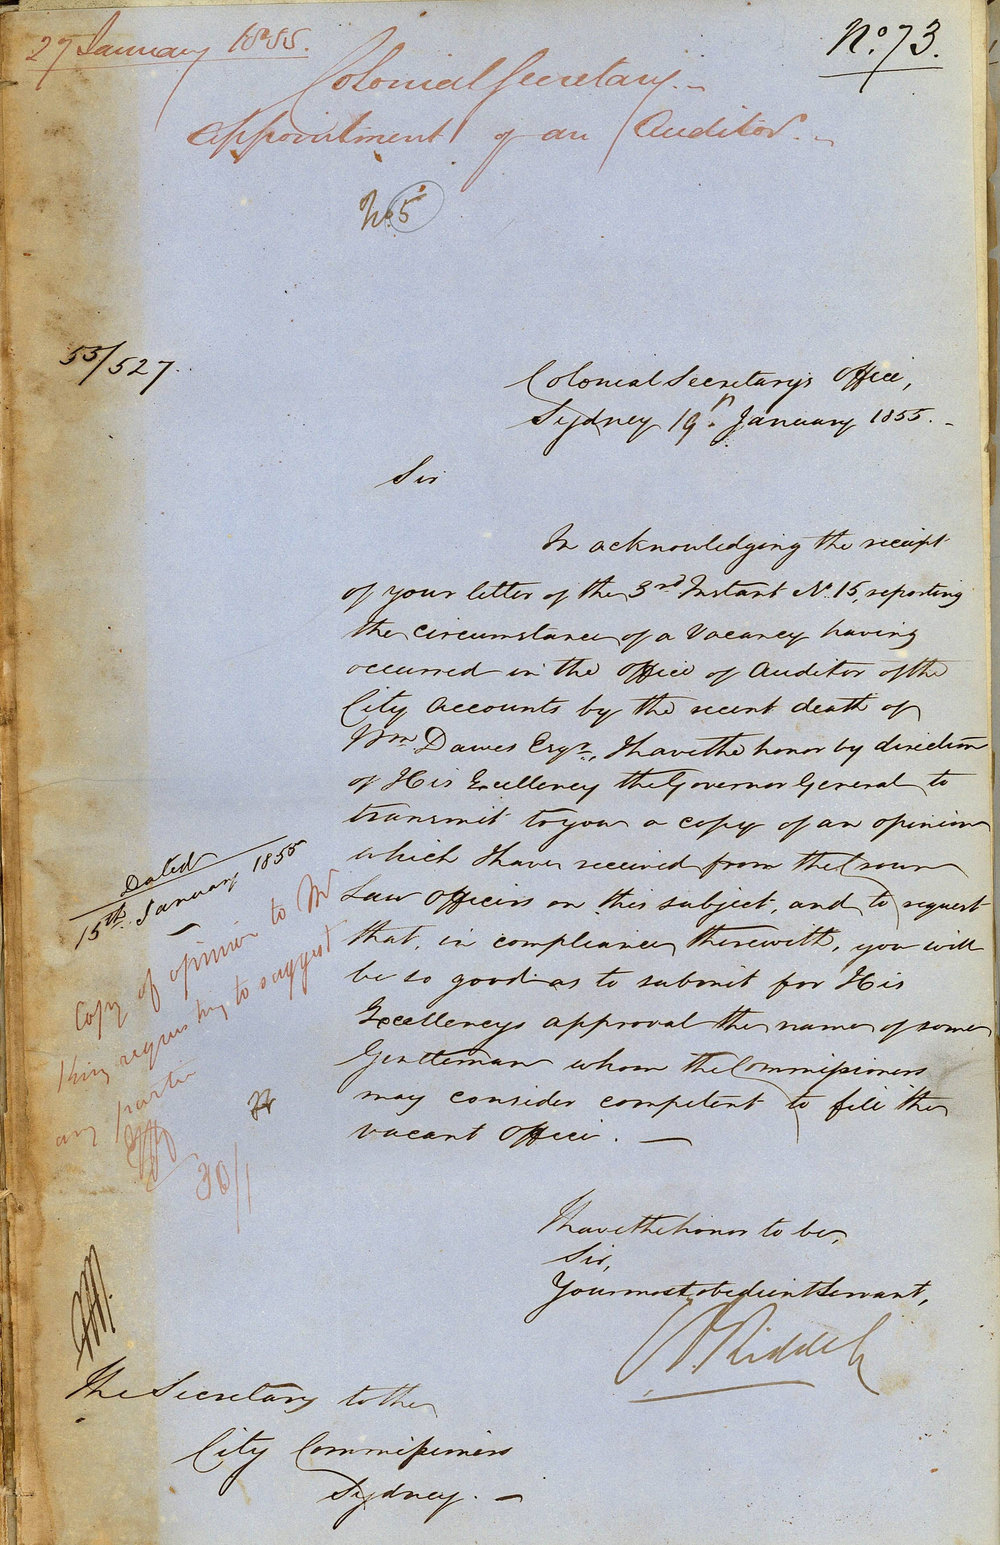 27 January 1855.
No. 73.
Colonial Secretary. -
Appointment of an Auditor. -
No 5
55/527.
Colonial Secretary's Office,
Sydney 19th January 1855. -
Sir
In acknowledging the receipt
of your letter of the 3rd Instant No. 15, reporting
the circumstance of a Vacancy having
occurred in the Office of Auditor of the
City Accounts by the recent death of
Wm Dawes Esqr., I have the honor by direction
of His Excellency the Governor General to
transmit to you a copy of an opinion
which I have received from the Crown
Law Officers on this subject, and to request
that, in compliance therewith, you will
be so good as to submit for His
Excellency's approval the name of some
Gentleman whom the Commissioners
may consider competent to fill the
vacant Office. —
Dated
15th January 1855
Copy of opinion to Mr
King requesting to suggest
any partie
30/1
I have the honor to be,
Sir,
Your most obedient Servant,
Riddell
The Secretary to the
City Commissioners
Sydney. -